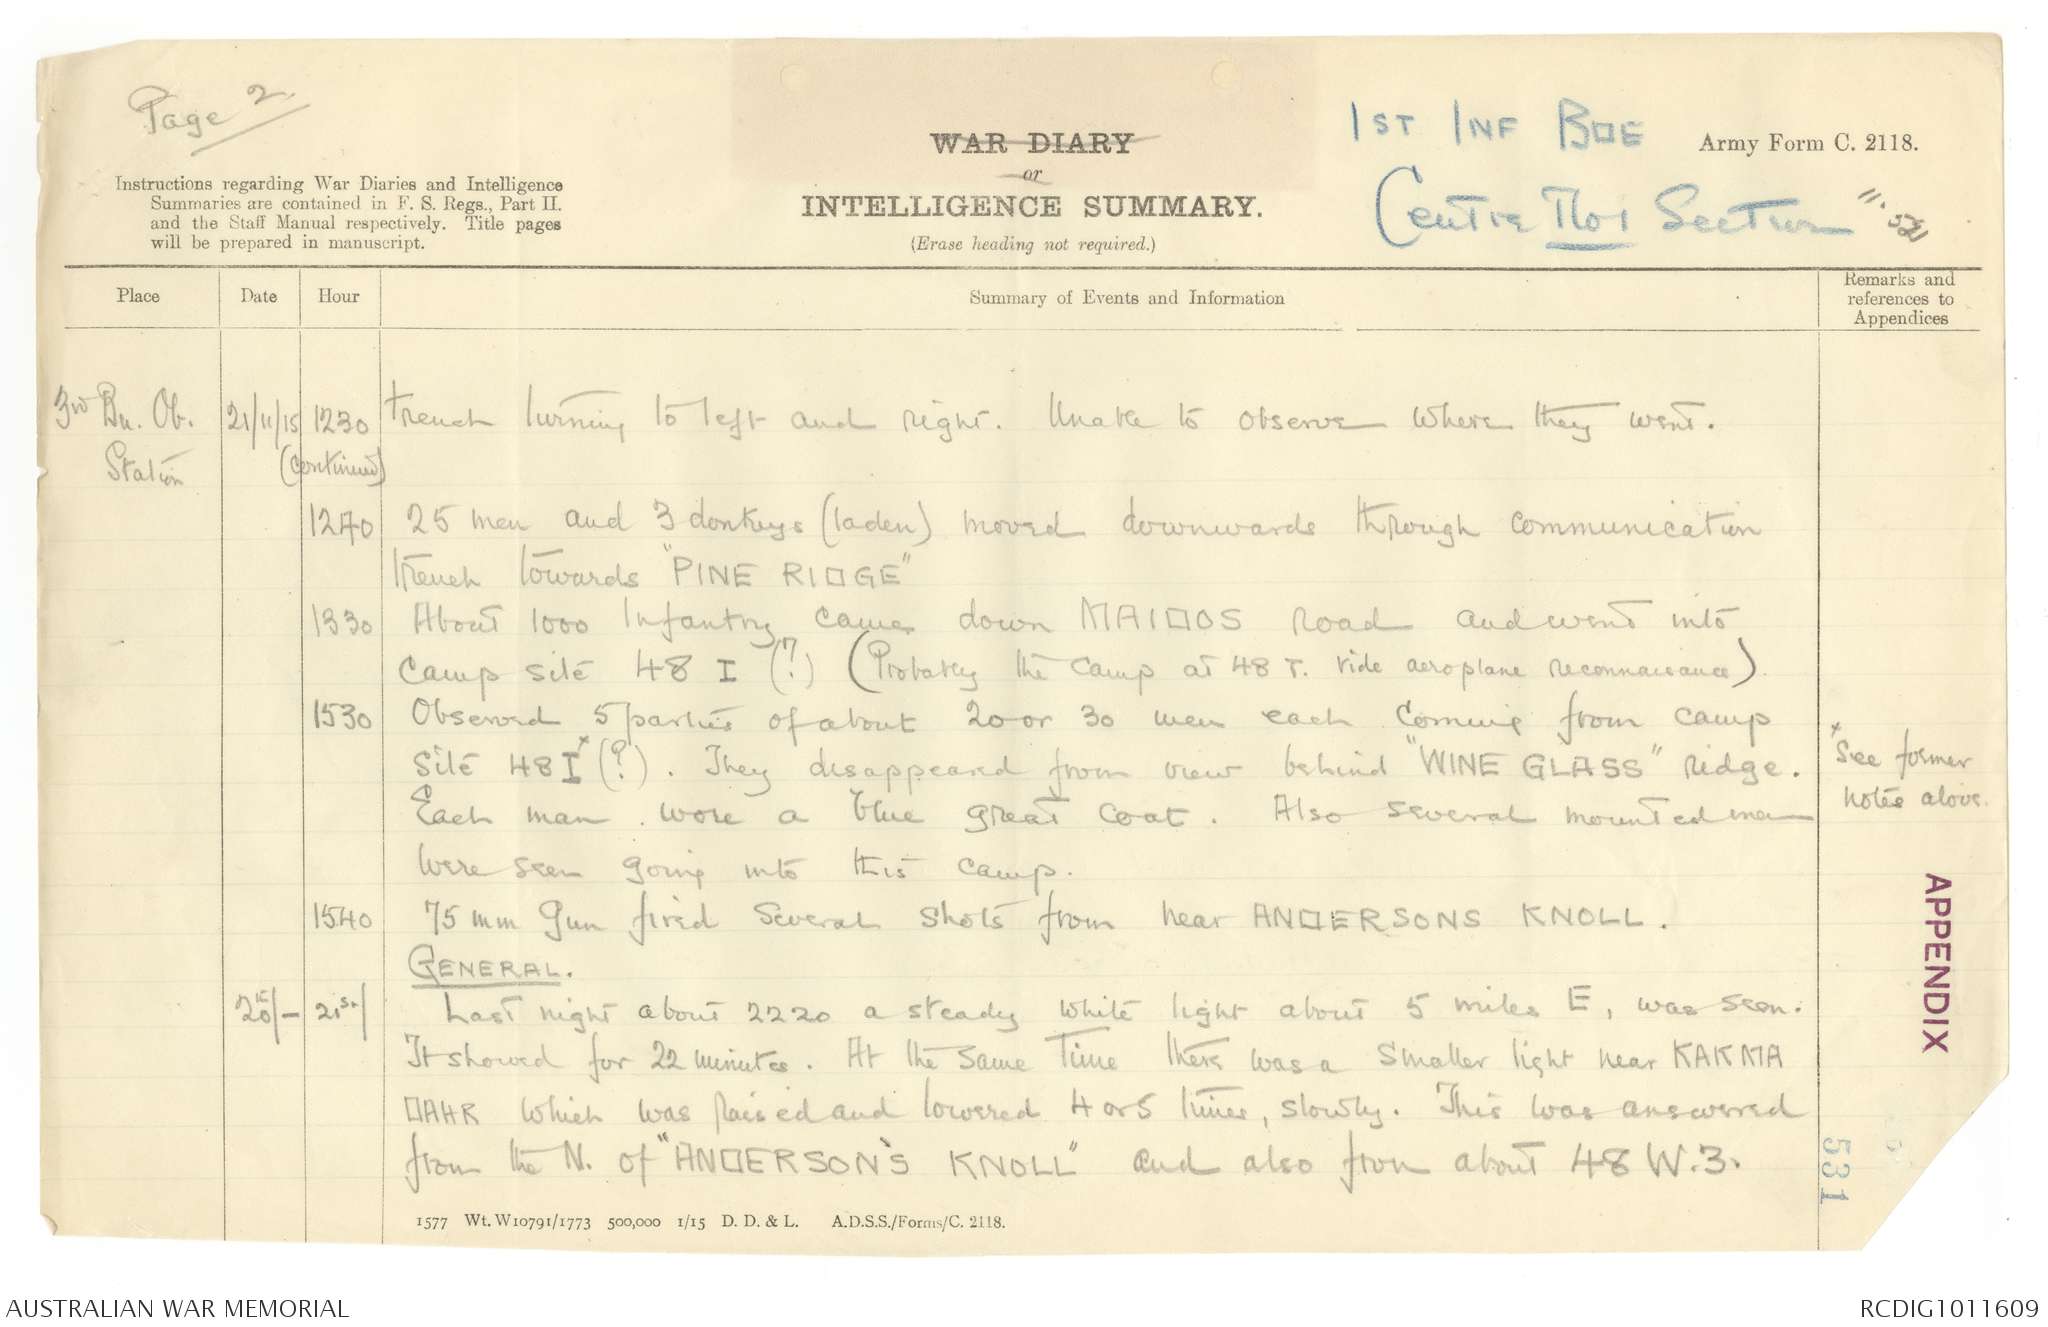 Page 2.
1ST INF BDE
Army Form C. 2118.
WAR DIARY
or
INTELLIGENCE SUMMARY.
(Erase heading not required.)
Centre No 1 Section
Instructions regarding War Diaries and Intelligence
Summaries are contained in F. S. Regs., Part II.
and the Staff Manual respectively. Title pages
will be prepared in manuscript.
Place Date Hour Summary of Events and Information Remarks and references to Appendices
3rd Bn. Ob. 21/11/15 1230 trench turning to left and right. Unable to observe where they went.
Station (continued)
1240 25 men and 3 donkeys (laden) moved downwards through communication
trench towards "PINE RIDGE"
1330 About 1000 Infantry came down MAIDOS Road and went into
camp site 48 I (?) (Probably the camp at 48 T. vide aeroplane reconnaissance)
1530 Observed 5 parties of about 20 or 30 men each coming from camp
site 48 I x (?). They disappeared from view behind "WINE GLASS" ridge. x See former
Each man wore a blue great coat. Also several mounted men notes above.
were seen going into this camp.
1540 75 mm Gun fired several shots from near ANDERSONS KNOLL.
GENERAL.
20th/- 21st/ Last night about 2220 a steady white light about 5 miles E, was seen.
It showed for 22 minutes. At the same time there was a smaller light near KAKMA
DAHR which was raised and lowered 4 or 5 times, slowly. This was answered
from the N. of "ANDERSON'S KNOLL" and also from about 48 W.3.
APPENDIX
531
1577 Wt. W10791/1773 500,000 1/15 D. D. & L. A.D.S.S./Forms/C. 2118.
AUSTRALIAN WAR MEMORIAL
RCDIG1011609